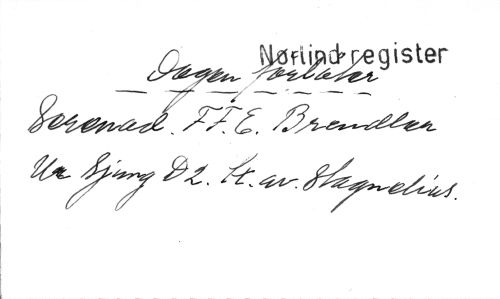 Norlind-register
Dagen förlåter
Serenad. F.F.E. Brendler
Ur Sjung D2. Tt. av. Stagnelius.